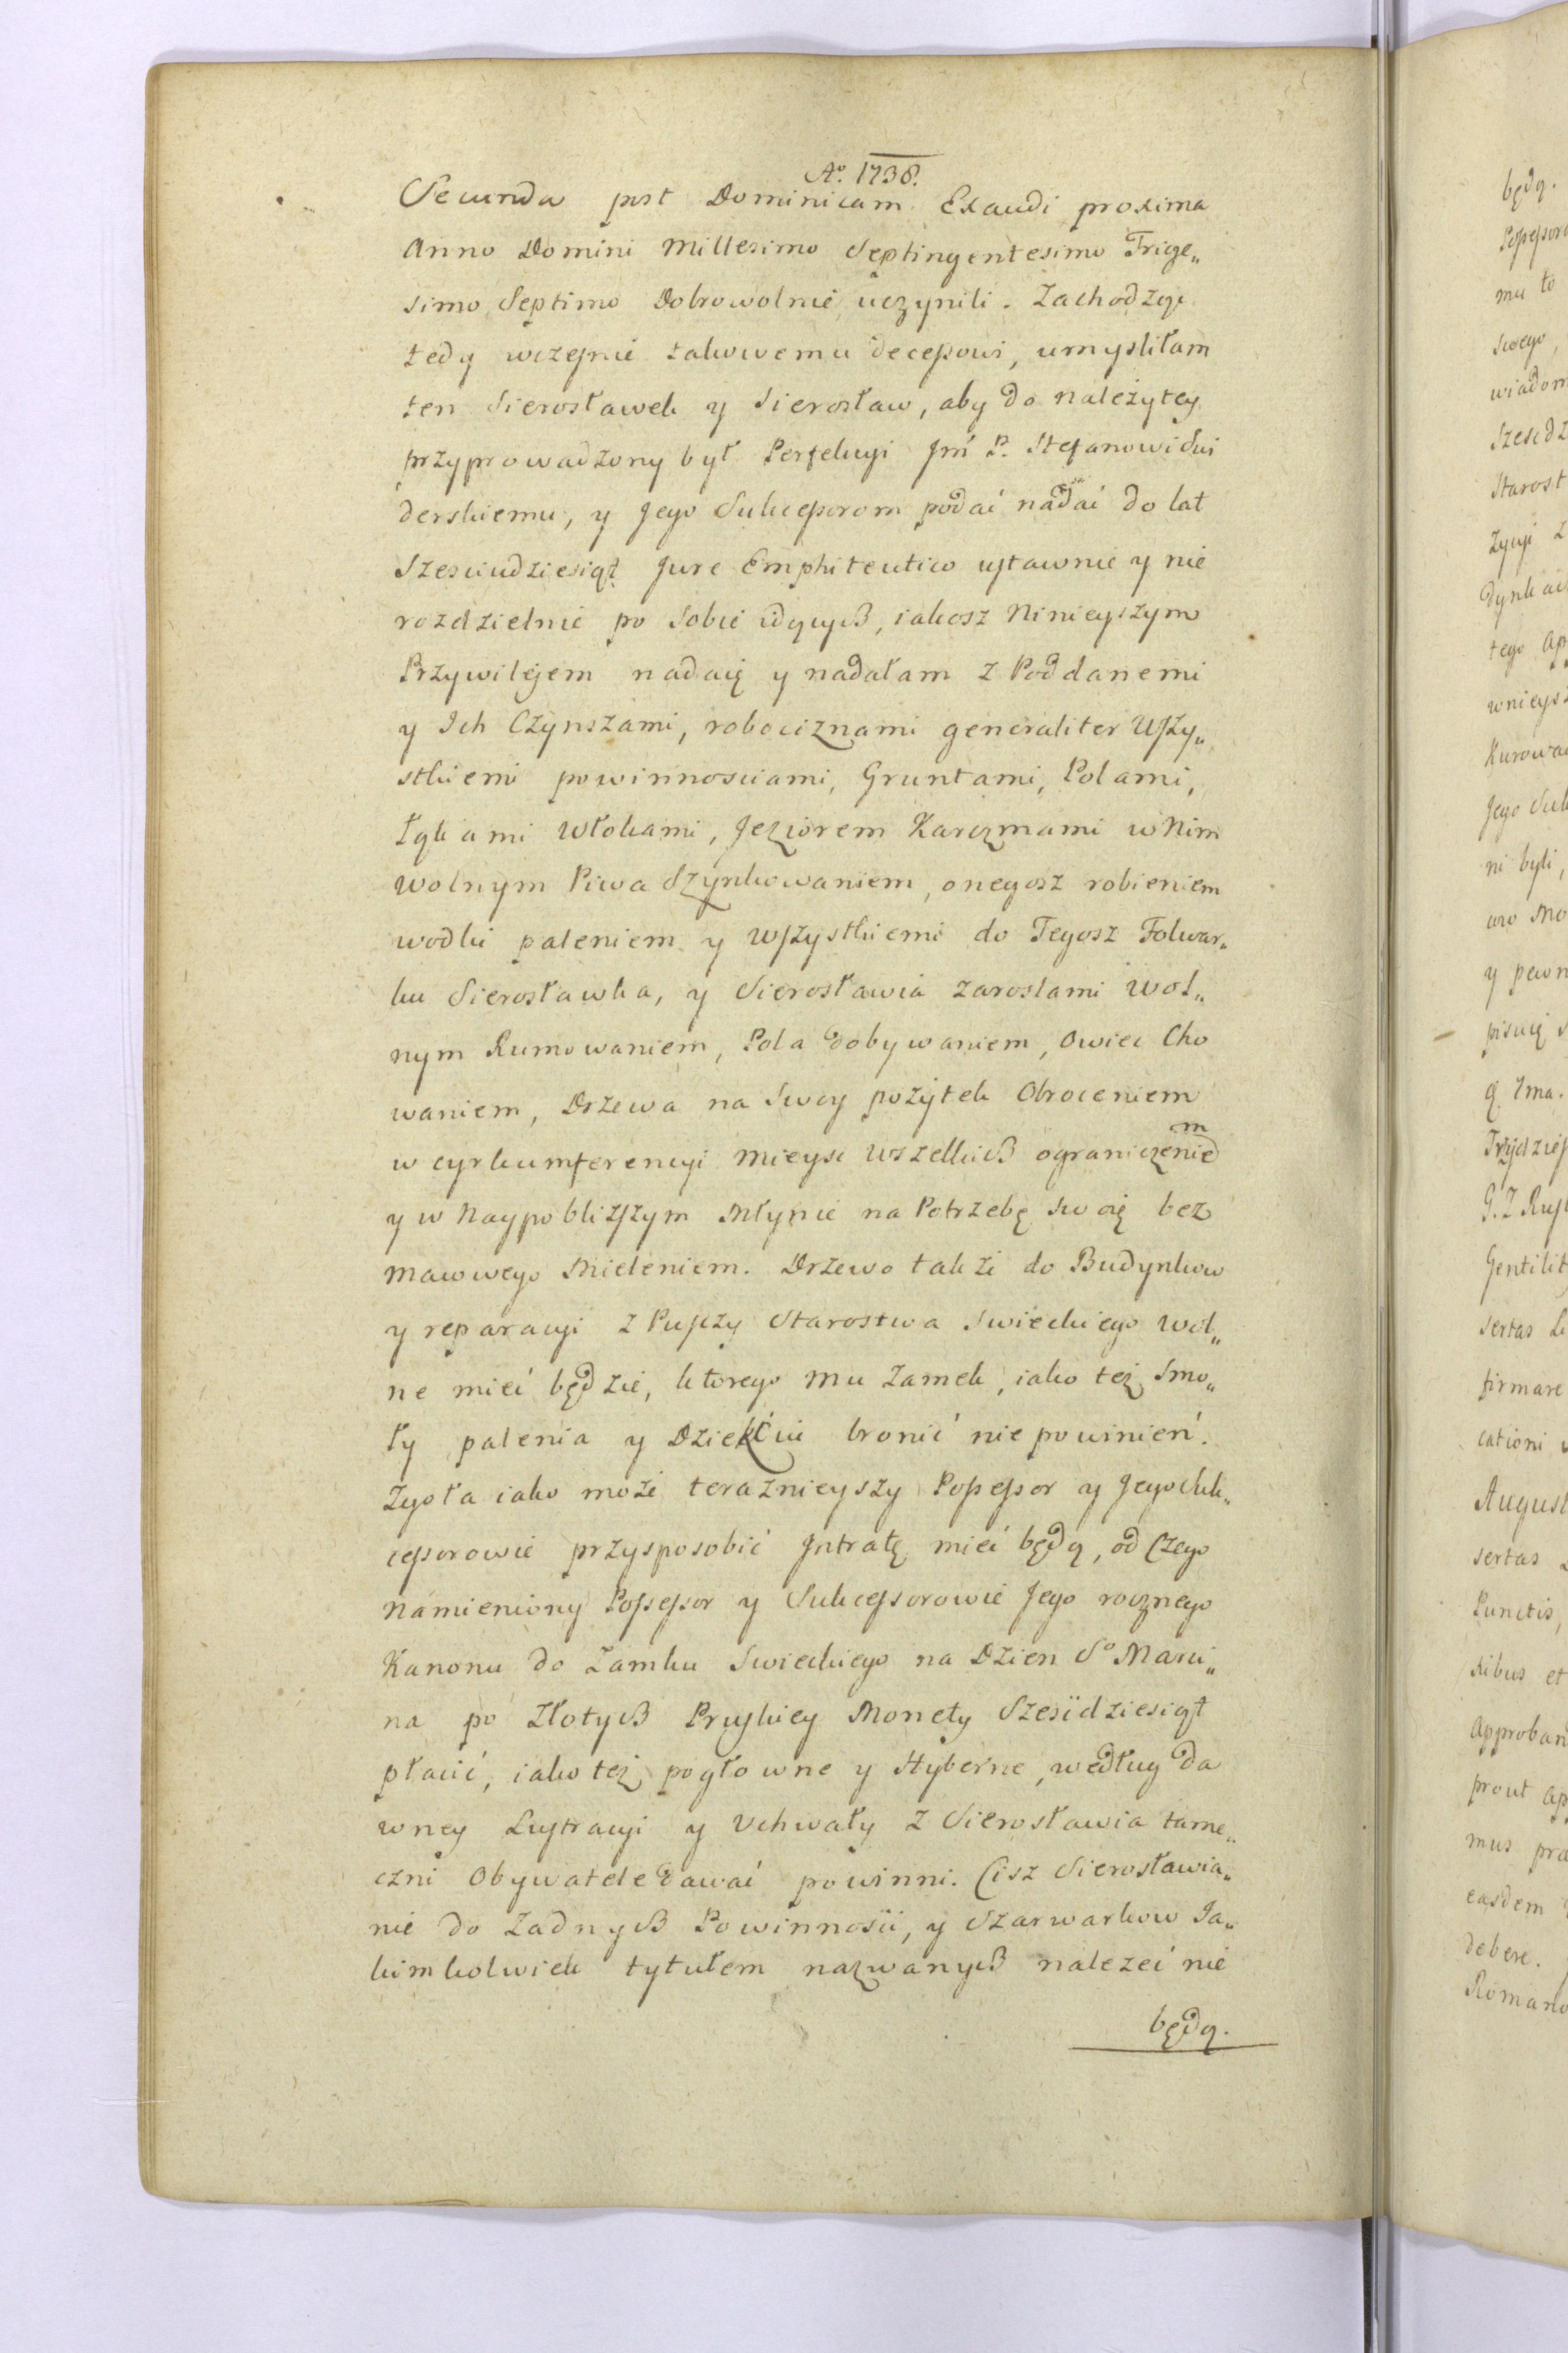 Ao. 1738.
Secunda post Dominicam Exaudi proxima
Anno Domini Millesimo Septingentesimo Trige„
simo Septimo Dobrowolnie uczynili. Zachodząc
tedy wczesnie takowemu decessowi, umysliłam
ten Sierosławek y Sierosław, aby do należytey
przyprowadzony był Perfekcyi Jmć P. Stefanowi Swi
derskiemu, y Jego Sukcessorom podać nadać do lat
Szesciudziesiąt Jure Emphiteutico ustawnie y nie
rozdzielnie po sobie idących, iakosz Ninieyszym
Przywilejem nadaię y nadałam z Poddanemi
y Ich Czynszami, robociznami generaliter Wszy„
stkiemi powinnosciami, Gruntami, Polami,
Łąkami Włokami, Jeziorem Karczmami w Nim
wolnym Piwa Szynkowaniem, onegosz robieniem
wodki paleniem y Wszystkiemi do Tegosz Folwar„
ku Sierosławka, y Sierosławia zaroslami Wol„
nym Rumowaniem, Pola dobywaniem, Owiec Cho
waniem, Drzewa na Swoy pożytek Obroceniem
w cyrkumferencyi Mieysc Wszelkich ograniczeniem
y w Naypobliższym Młynie na Potrzebę swoię bez
Mawowego Mieleniem. Drzewo także do Budynkow
y reparacyi z Puszczy Starostwa Swieckiego Wol„
ne mieć będzie, ktorego Mu Zamek, iako też Smo„
ły palenia y Dziekciu bronić nie powinień.
Zgoła iako może teraznieyszy Possessor y Jego Suk„
cessorowie przysposobić Jntratę mieć będą, od Czego
Namieniony Possessor y Sukcessorowie Jego rocznego
Kanonu do Zamku Swieckiego na Dzien So Marci„
na po Złotych Pruskiey Monety Szescidziesiąt
płacić, iako też pogłowne y Hyberne, według Da
wney Lustracyi y Uchwały z Sierosławia tame„
czni Obywatele dawać powinni. Cisz Sierosławia„
nie do Zadnych Powinności, y Szarwarkow Ja„
kimkolwiek tytułem nazwanych należeć nie
będą.
będą.
mu to
swego,
Starost
tego
Jego Suk
ni byli,
firmare
August
Punctis,
prout
debere.